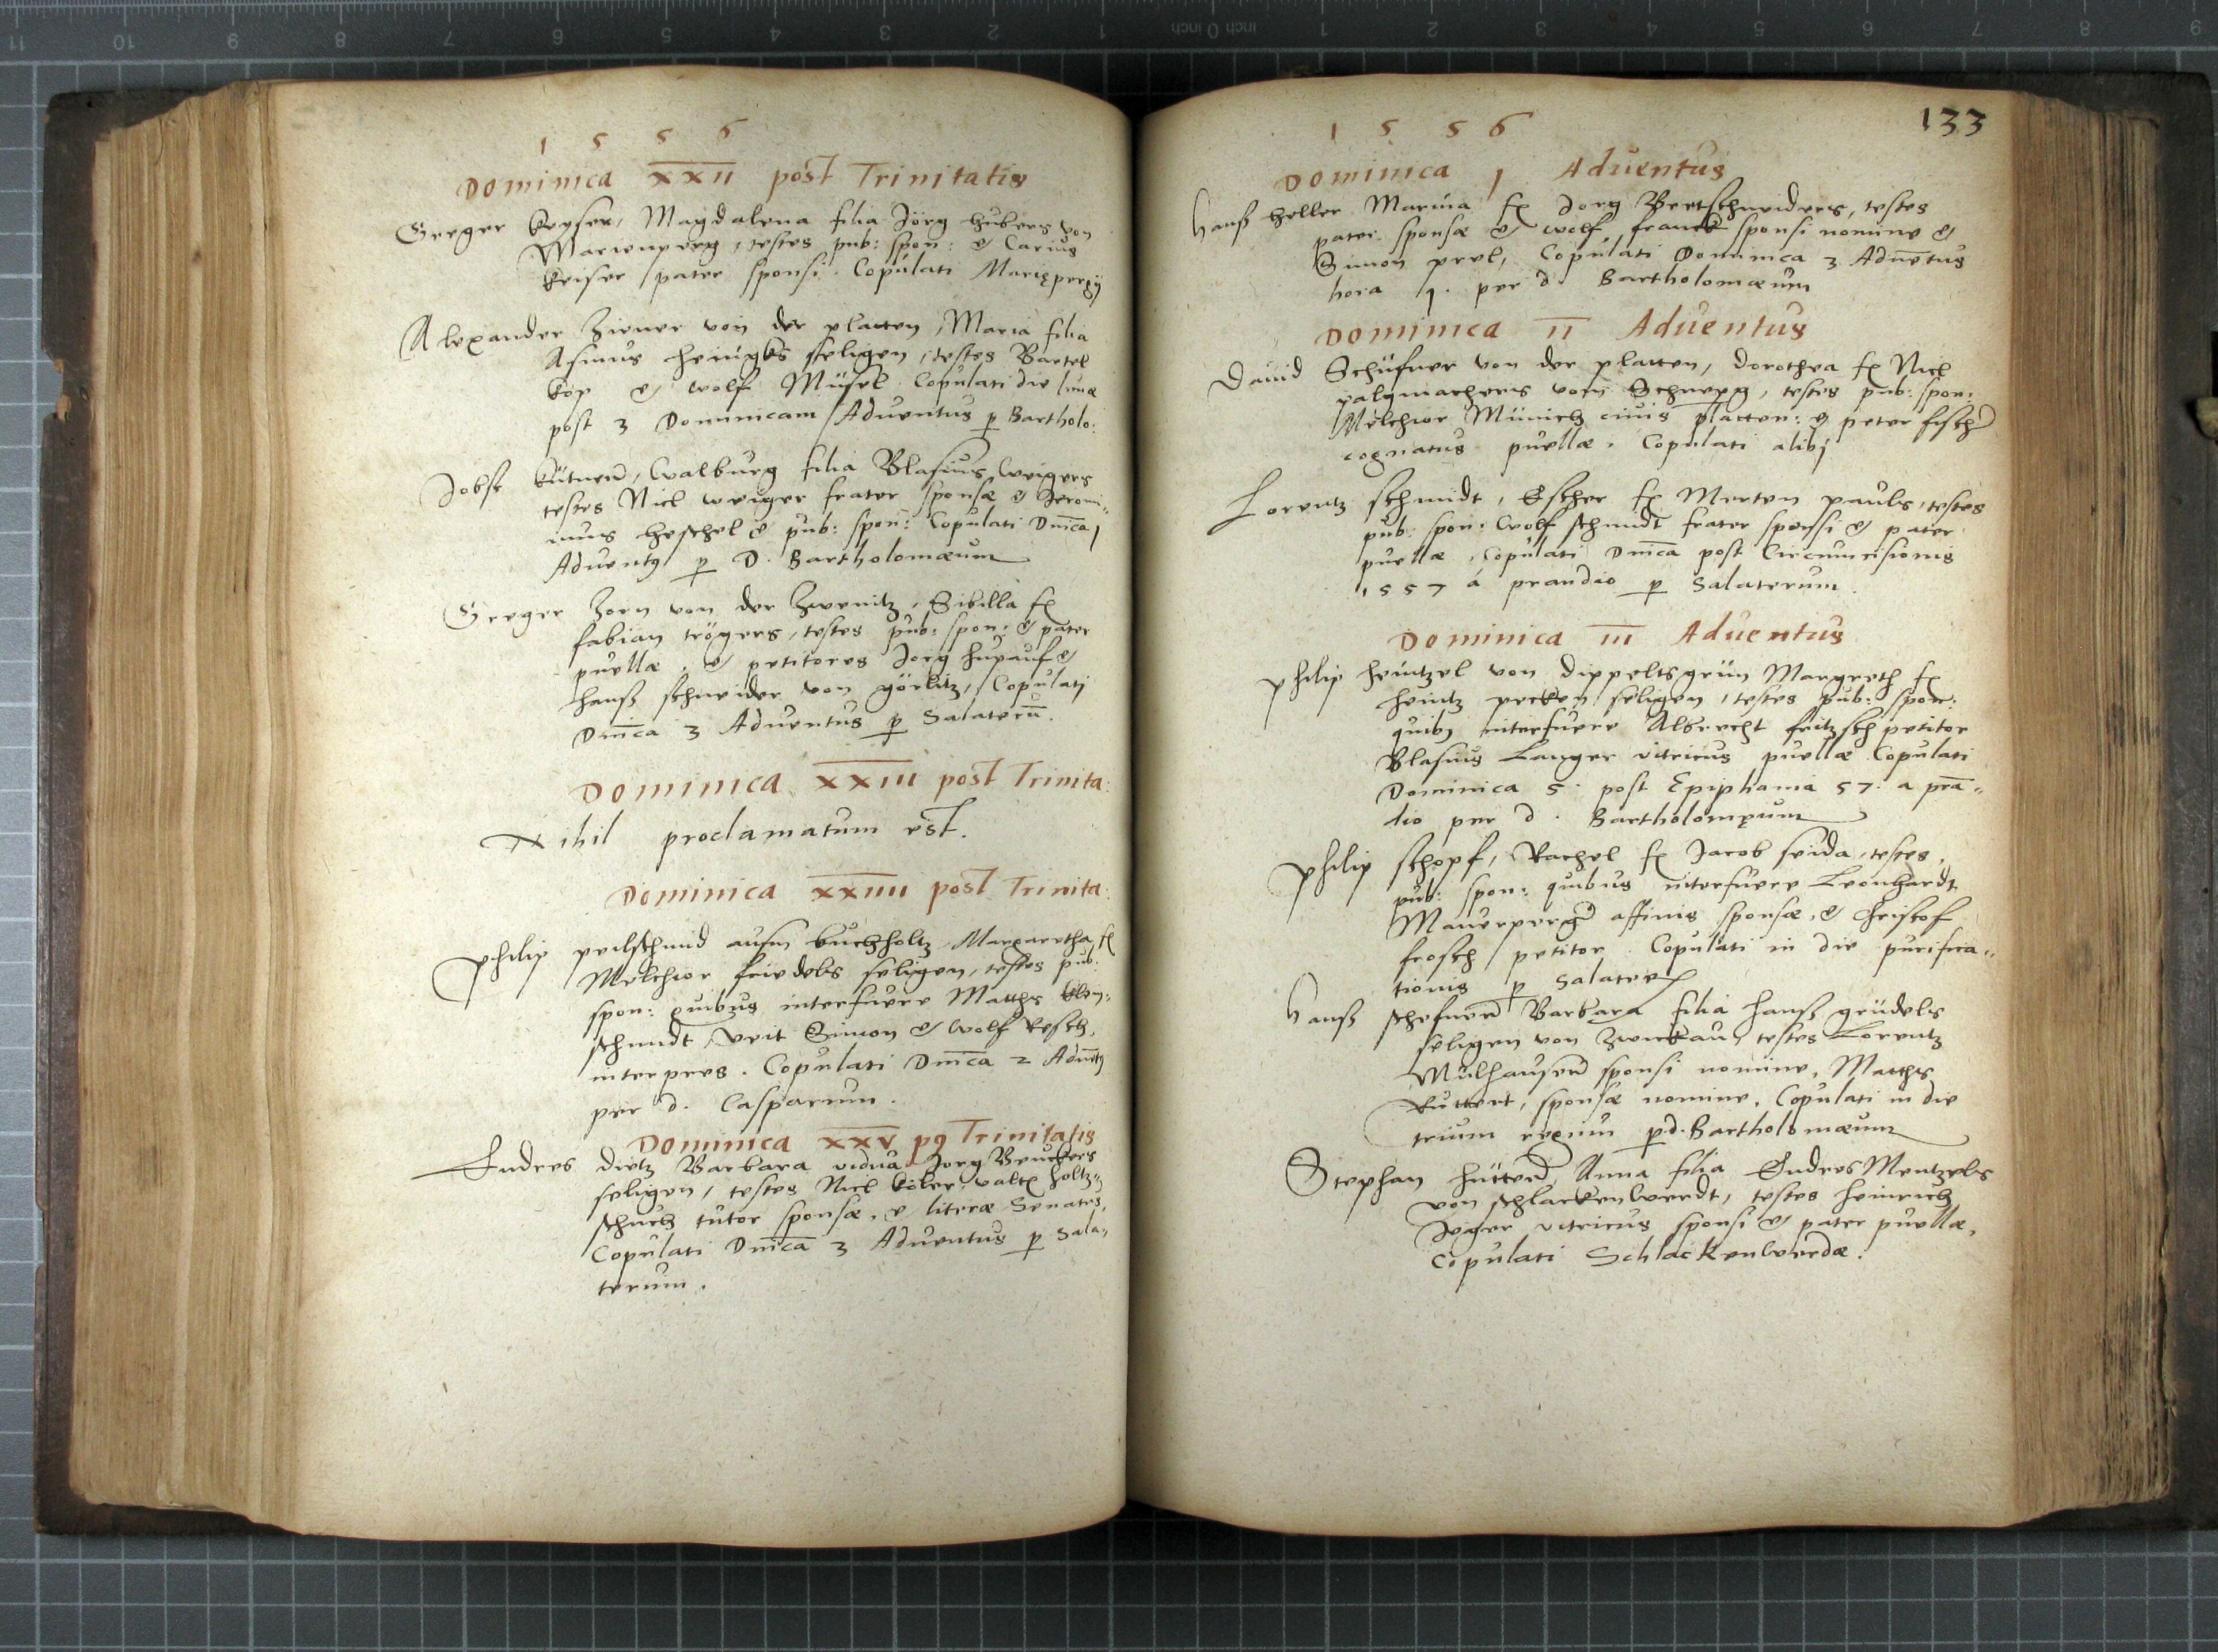 1 5 5 6
Dominica XXII post Trinitatis
Greger Keyser, Magdalena filia Jörg hubers von
Marienperg, testes pub: spon: & Carius
Keiser pater sponsi. Copulati Mariępergij
Alexander Ziener von der platten, Maria filia
Asmus heingks seligen, testes Bartel
Kop & wolf Müsel. Copulati die lunæ
post 3 Dominicam Adventus p Bartholo:
Jobst Kütner, Walburg filia Blasius Weigers
testes Nicl weiger frater sponsæ & Jeroni„
mus heschel & pub: spon: Copulati Dnica 1
Advent9 p D. Bartholomæum
Greger Zorn von der Zwenitz, Sibilla f
fabian trögers, testes pub: spon: & pater
puellæ. & petitores Jorg hupauf &
hanß schneider von görlitz, Copulati
Dnica 3 Adventus p Salaterū.
Dominica XXIII post Trinita:
Nihil proclamatum est.
Dominica XXIIII post Trinita:
philip peilschmid aufm buchholtz, Margaretha f
Melchior friedels seligen, testes pub:
spon: quibus interfuere Matths klein„
schmidt, Veit Simon & Wolf Resch,
interpres. Copulati Dnica 2 Advēt9
per d. Casparum.
Dominica XXV p9 Trinitatis
Endres dietz Barbara vidua Jorg Beuckers
seligen, testes Nicl köler, valt holtz„
schuch tutor sponsæ, & literæ Senatus,
Copulati Dnica 3 Adventus p Sala„
terum.
133
1 5 5 6
Dominica I Adventus
Hanß heller Marina f Jorg Bretschneiders, testes
pater sponsæ & wolf franck sponsi nomine &
Simon prel, Copulati Dominica 3 Advētus
hora 1. per d. Bartholomæum
Dominica II Adventus
David Schüfner von der platten, Dorothea f Nicl
palgmachers vom Schneepg, testes pub: spon:
Melchior Münich civis platten: & peter fischer
cognatus puellæ. Copulati alibj
Lorentz schmidt, Esther f Merten pauls, testes
pub: spon: Wolf schmidt frater sponsi & pater
puellæ, Copulati Dnica post Circumcisionis
1557 á prandio p Salaterum.
Dominica III Adventus
philip heintzel von dippeltsgrün Margreth f
heintz pecken seligen, testes pub: spon:
quib9 interfuere Albrecht fritzsch petitor
Blasius Langer vitricus puellæ Copulati
Dominica 5. post Epiphania 57. a prā„
dio per d. Bartholomęum
philip schopf, Rachel f Jacob seida, testes,
pub: spon: quibus interfuere Leonhardt
Maurperger affinis sponsæ, & Christof
frosch petitor. Copulati in die purifica„
tionis p Salater
Hanß schefner Barbara filia hanß grüdels
seligen von Zwickau, testes Lorentz
Mülhauser sponsi nomine, Matths
Ruttert, sponsæ nomine. Copulati in die
trium regum p d. Bartholomæum
Stephan hütter, Anna filia Endres Mentzels
von schlackenwerdt, testes heinrich
Jeger vitricus sponsi & pater puellæ,
Copulati Schlackenwerdæ.